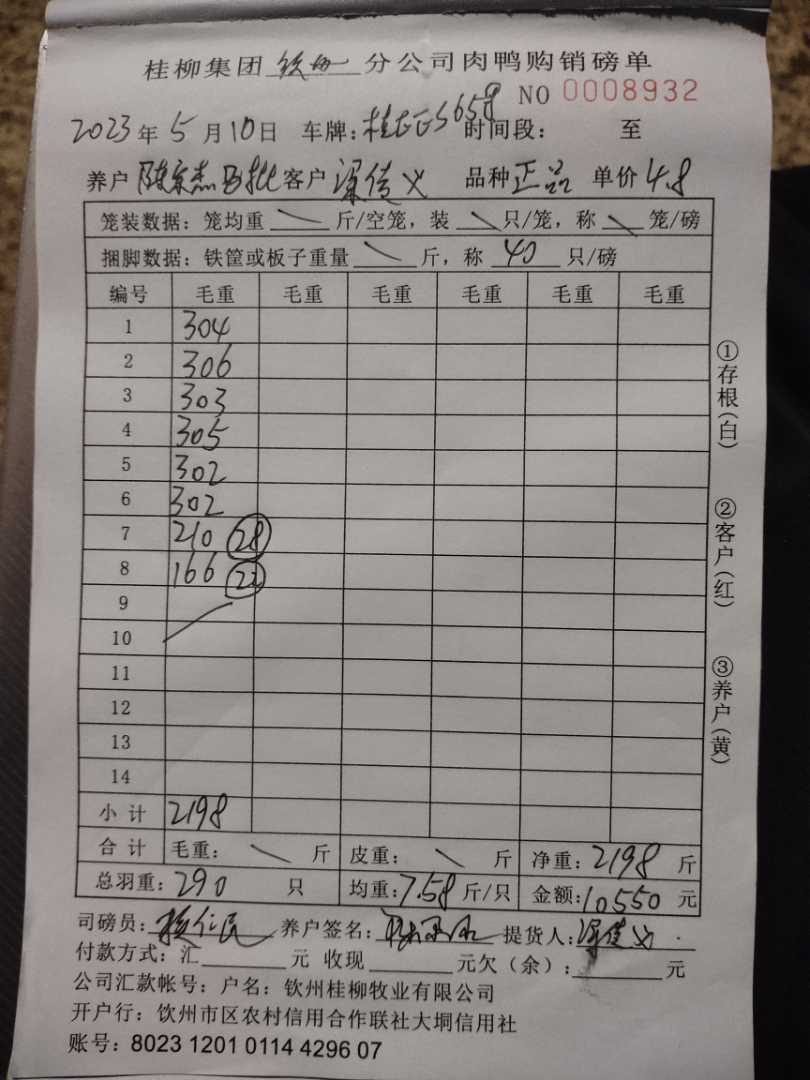 桂柳集团 钦州 分公司肉鸭购销磅单
NO 0008932
2023年5月10日 车牌: 时间段: 至
养户 批客户 梁传义 品种 正品 单价 4.8
笼装数据：笼均重 斤/空笼，装 只/笼，称 笼/磅
捆脚数据：铁筐或板子重量 斤，称 40 只/磅
编号 毛重 毛重 毛重 毛重 毛重 毛重
1 304
2 306
3 303
4 305
5 302
6 302
7 210 28
8 166 22
9
10
11
12
13
14
小计 2198
合计 毛重： 斤 皮重： 斤 净重：2198 斤
总羽重：290 只 均重：7.58 斤/只 金额：10550 元
司磅员： 养户签名： 提货人：梁传义
付款方式：汇 元 收现 元欠（余）： 元
公司汇款帐号：户名：钦州桂柳牧业有限公司
开户行：钦州市区农村信用合作联社大垌信用社
账号：8023 1201 0114 4296 07
①存根(白)
②客户(红)
③养户(黄)